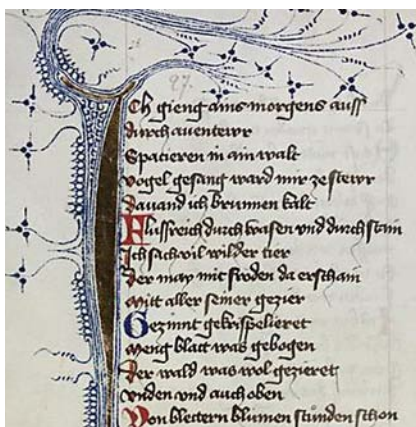 27.
Ich gieng ains morgens auss
durch auentewr
Spatieren in ain walt
vogel gesang ward mir ze stewr
Da uand ich brunnen kalt
Flussreich durch wasen vnd durch stain
Ich sach vil wilder tier
Der may mit froden da erschain
Mitt aller seiner gezier
Gezinnt gekrispelieret
Meng blatt was gebogen
Der wald was wol gezieret
Vnden vnd auch oben
Von blettern blůmen stůnden schon